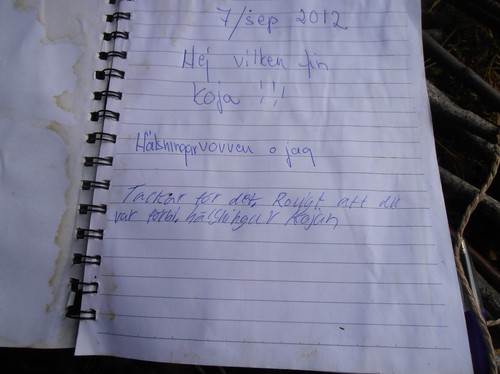 7/sep 2012
Hej vilken fin
koja !!!
Hälsningar vovven o jag
Tackar för det. Roligt att du
var förbi. hälsningar Kojan